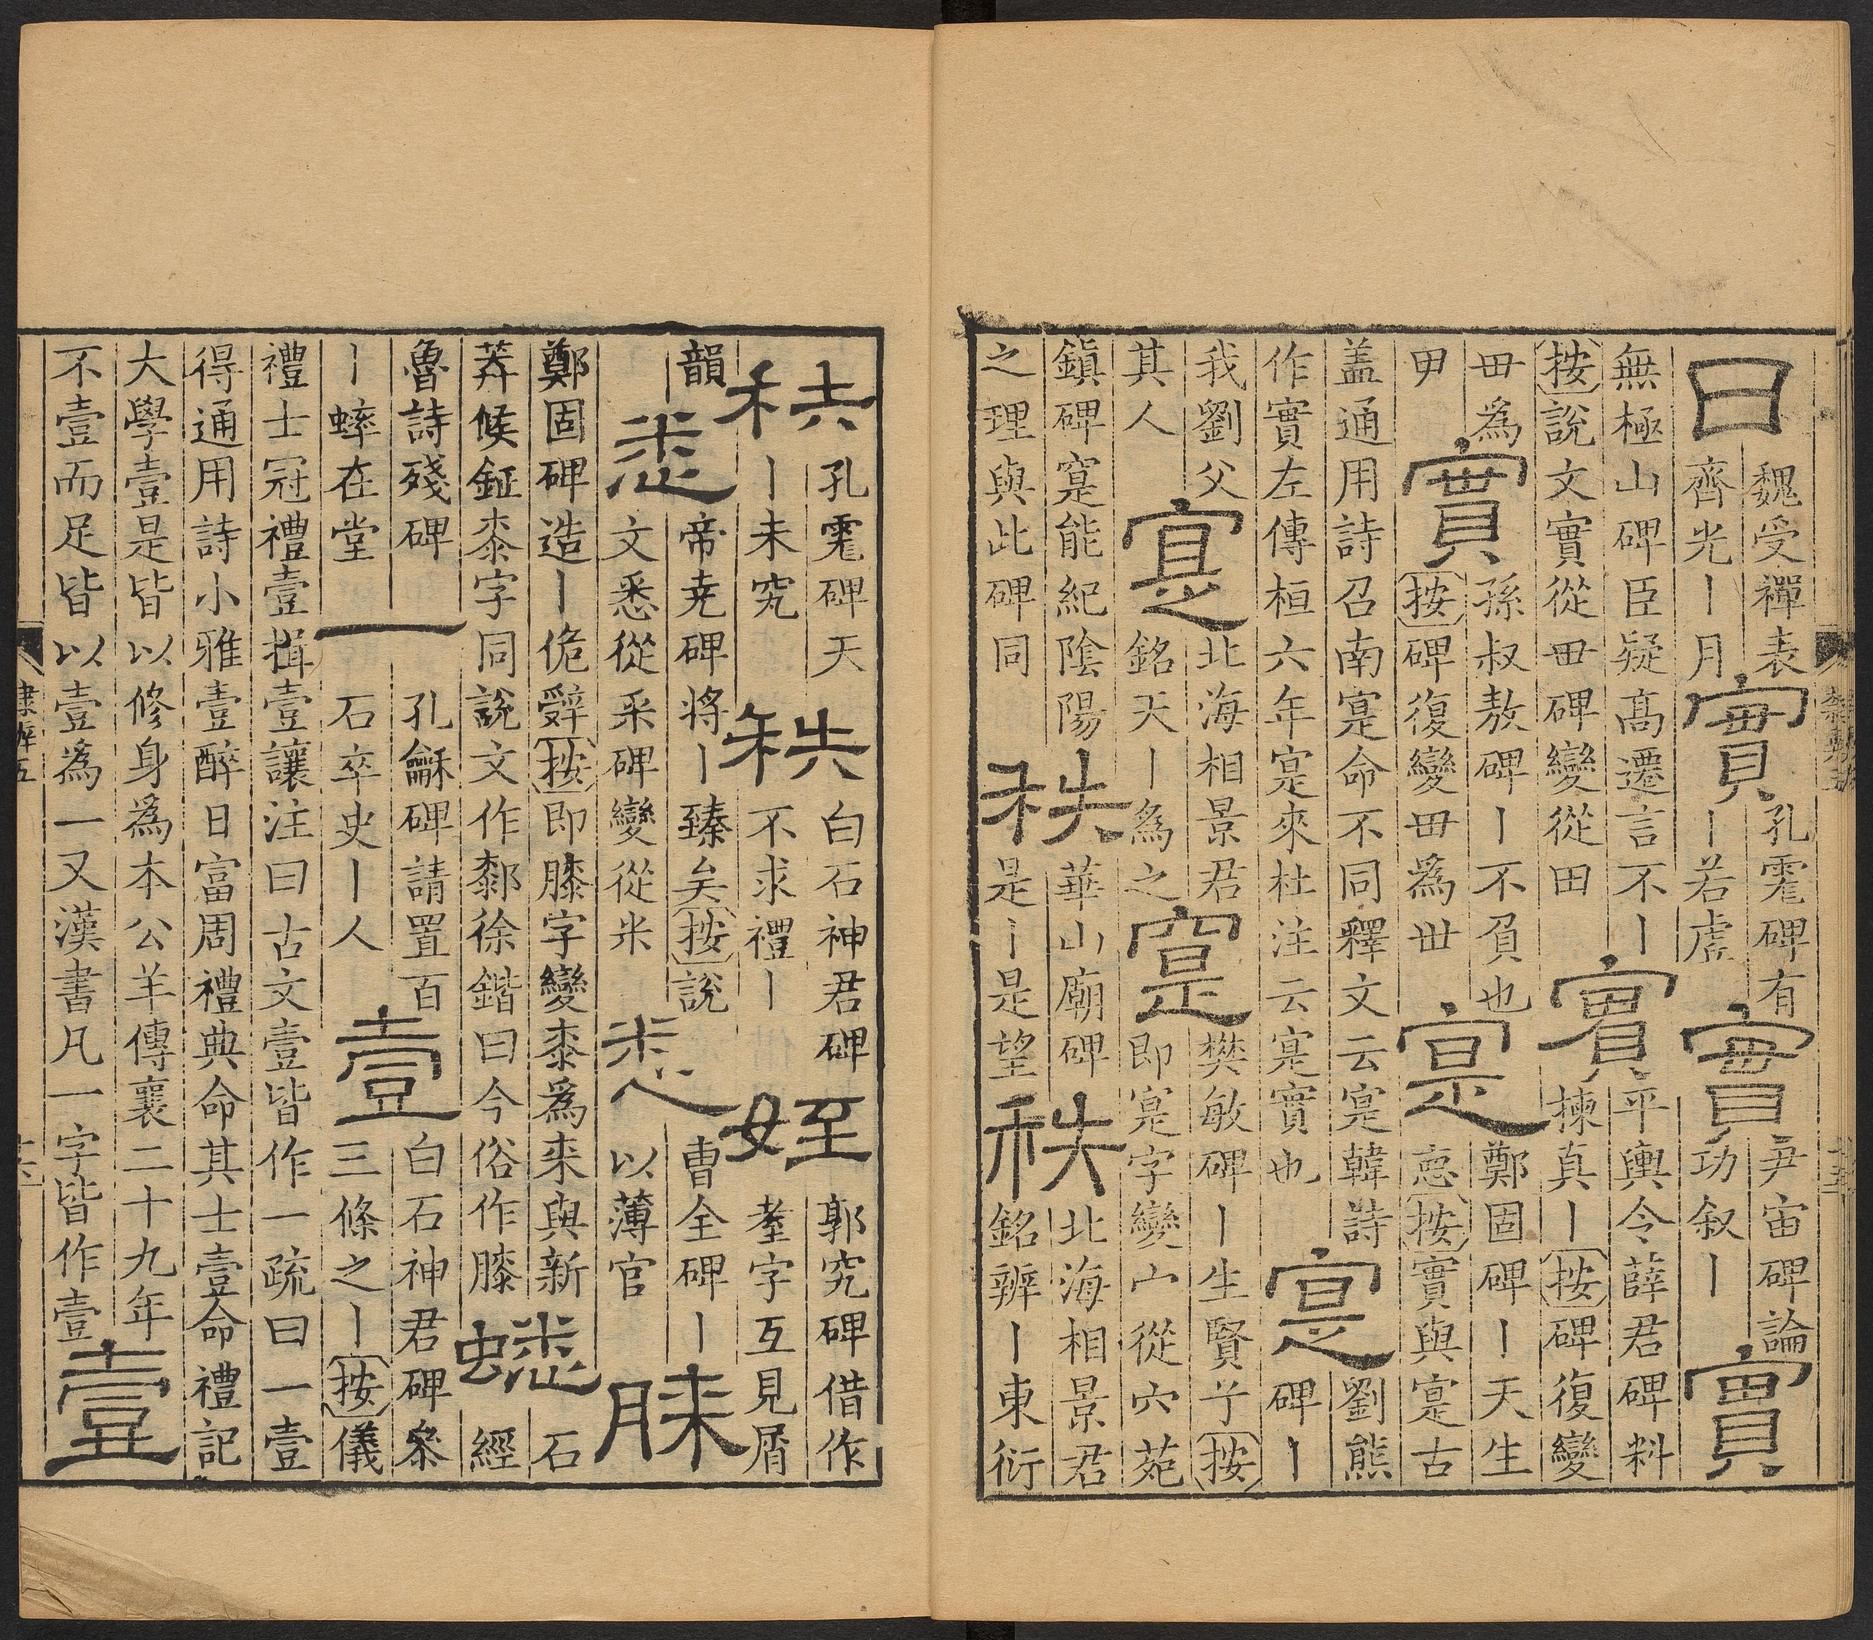 日
魏受禪表
齊光丨月
實
孔霔碑有
丨若虛
實
尹宙碑論
功叙丨
實
無極山碑臣疑高遷言不丨
按說文實從毌碑變從田
實
平輿令薛君碑料
揀真丨按碑復變
毌為
實
孫叔敖碑丨不負也
按碑復變毌為丗
寔
鄭固碑丨天生
惪按實與寔古
蓋通用詩召南寔命不同釋文云寔韓詩
作實左傳桓六年寔來杜注云寔實也
寔
劉熊
碑丨
我劉父
其人
寔
北海相景君
銘天丨為之
寔
樊敏碑丨生賢子按
即寔字變宀從穴苑
鎮碑寔能紀陰陽
之理與此碑同
秩
華山廟碑
是丨是望
秩
北海相景君
銘辨丨東衍
秩
孔霔碑天
丨未究
秩
白石神君碑
不求禮丨
姪
郭究碑借作
耋字互見屑
韻
悉
帝堯碑將丨臻矣按說
文悉從釆碑變從米
悉
曹全碑丨
以薄官
膝
鄭固碑造丨佹辭按即膝字變桼為来與新
莽候鉦桼字同說文作厀徐鍇曰今俗作膝
蟋
石
經
魯詩殘碑
丨蟀在堂
一
孔龢碑請置百
石卒史丨人
壹
白石神君碑叅
三條之丨按儀
禮士冠禮壹揖壹讓注曰古文壹皆作一疏曰一壹
得通用詩小雅壹醉日富周禮典命其士壹命禮記
大學壹是皆以修身為本公羊傳襄二十九年
不壹而足皆以壹為一又漢書凡一字皆作壹
壹
隸辨五